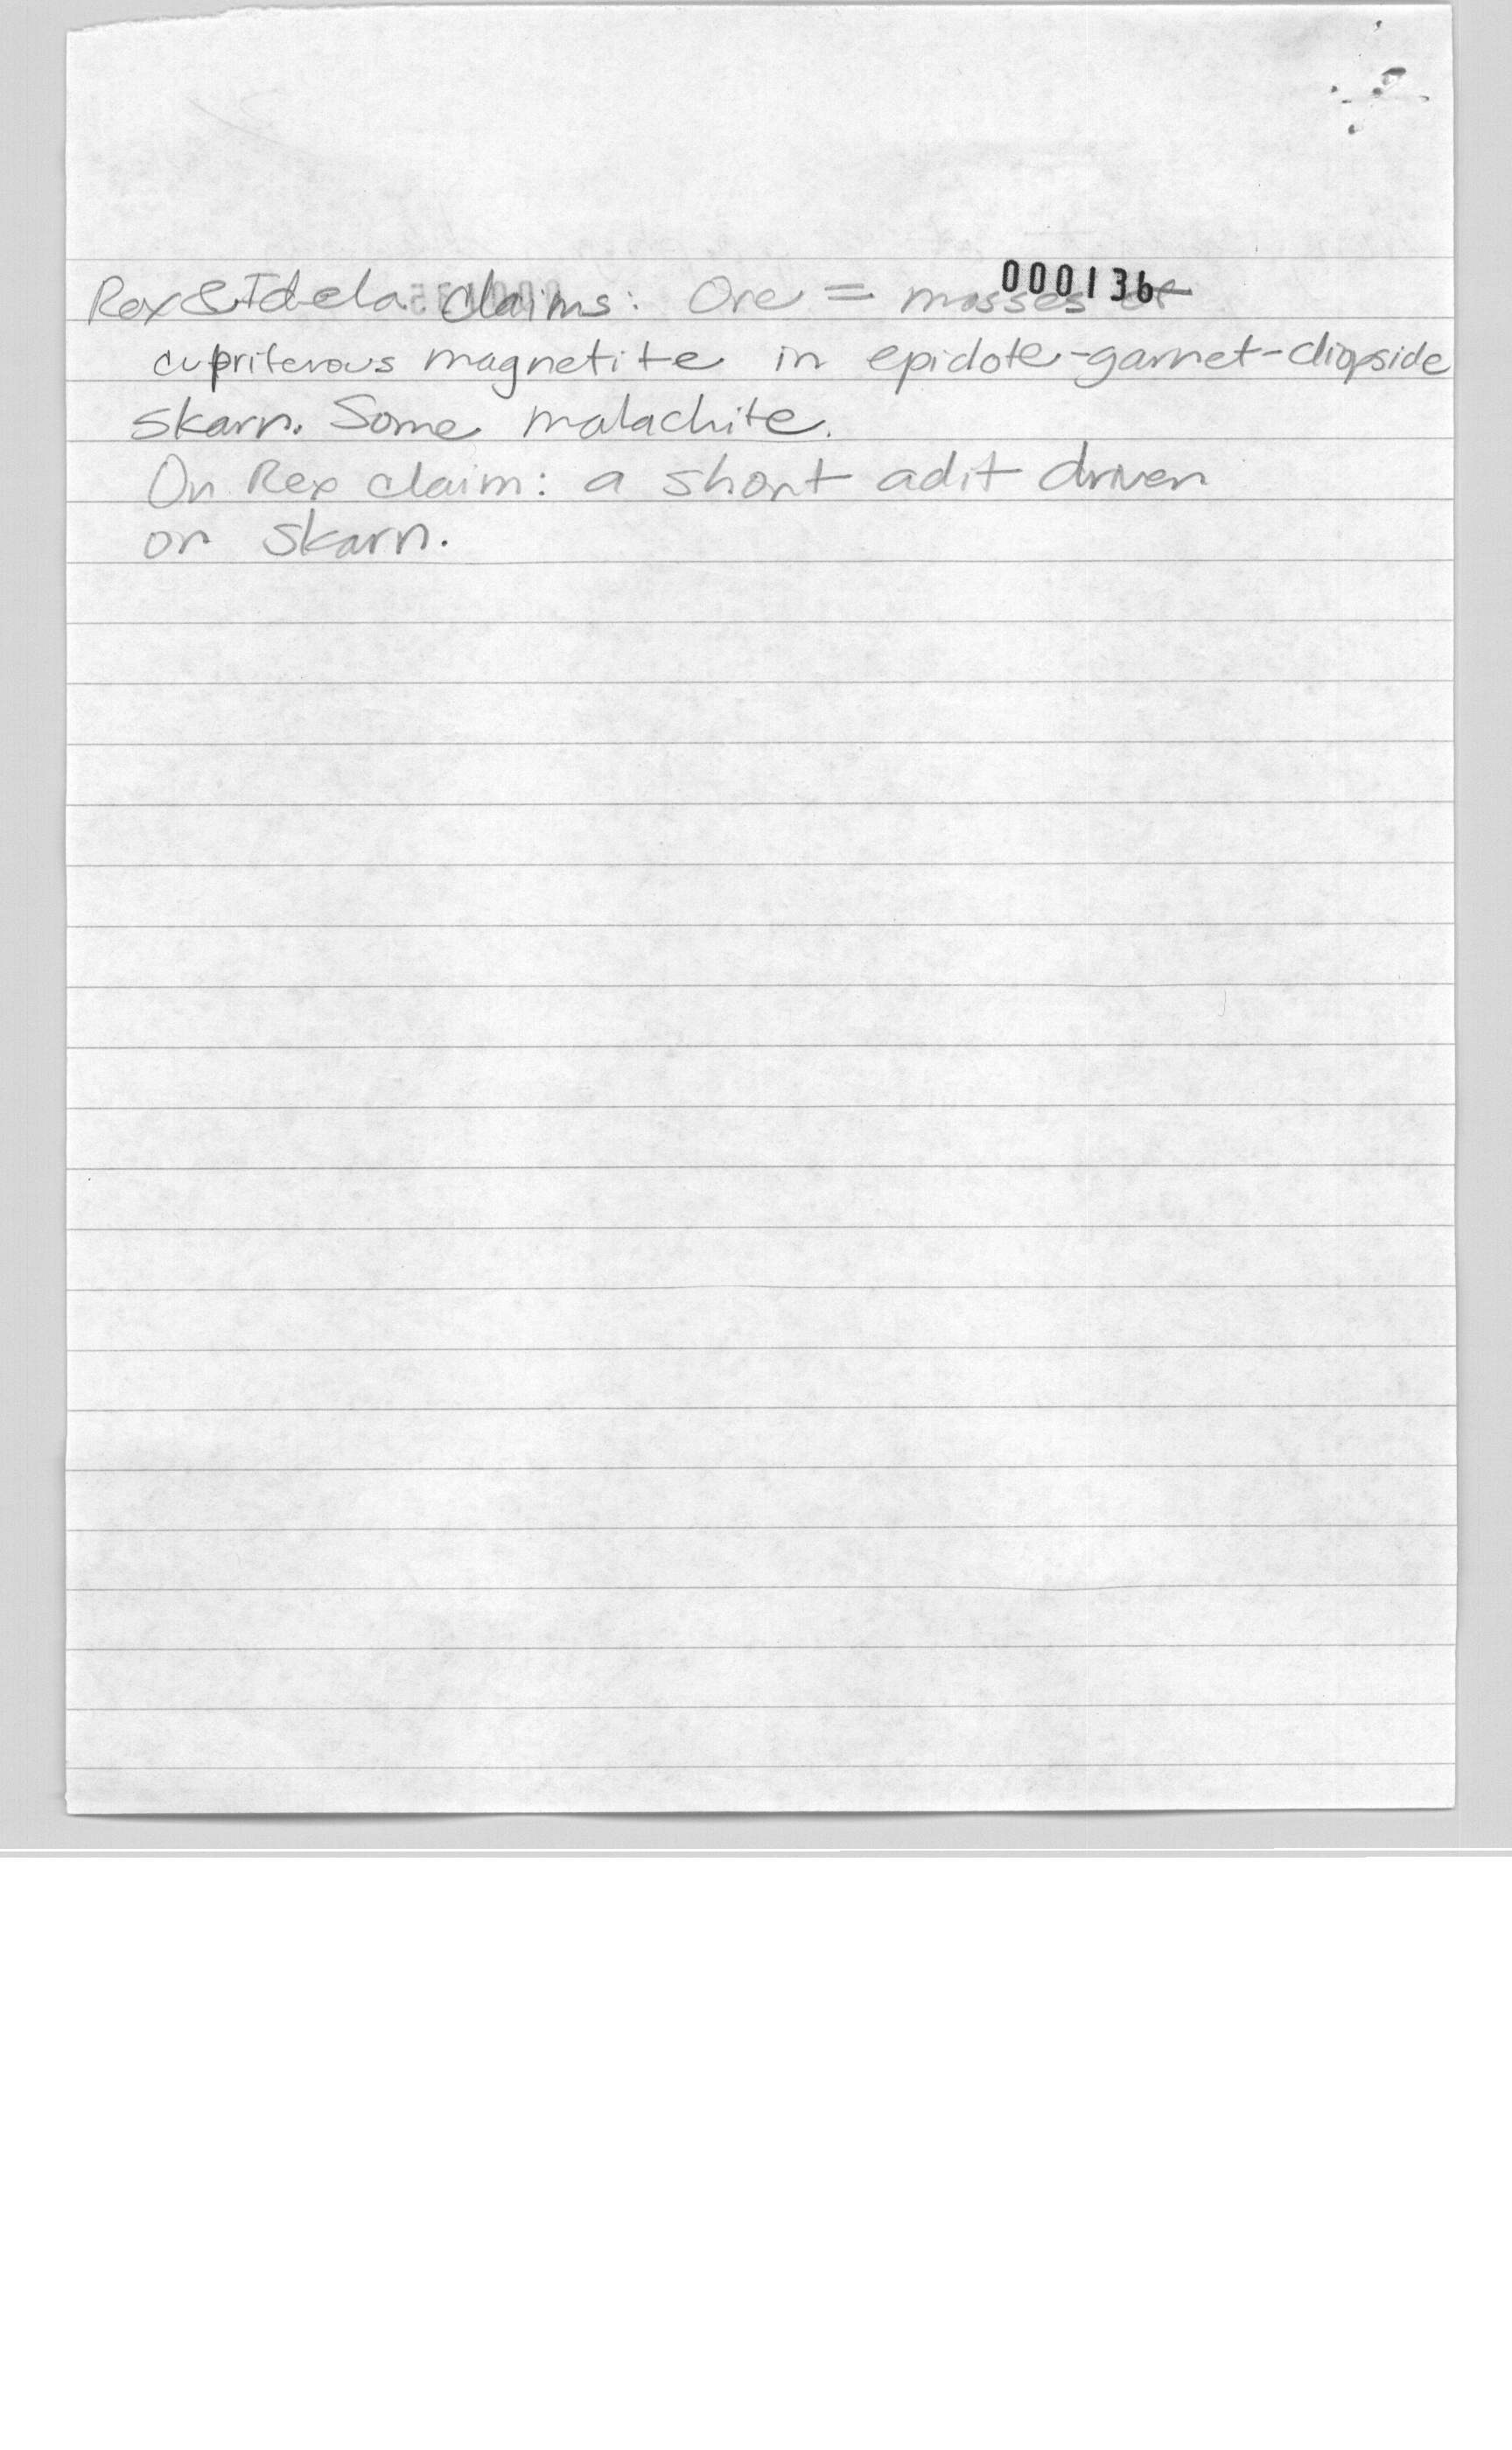 000136
Rex & Idela claims: Ore = masses of
cupriferous magnetite in epidote-garnet-diopside
skarn. Some malachite.
On Rex claim: a short adit driven
on skarn.